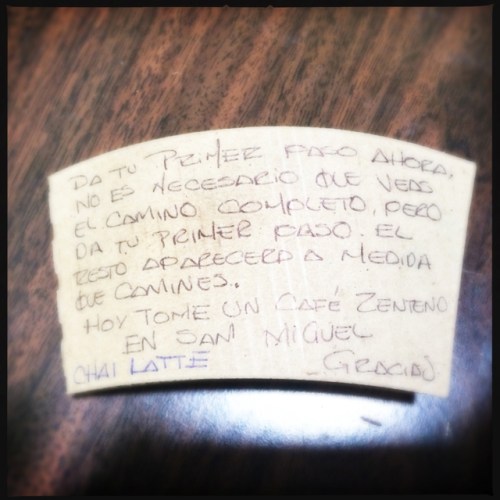 DA TU PRIMER PASO AHORA,
NO ES NECESARIO QUE VEAS
EL CAMINO COMPLETO, PERO
DA TU PRIMER PASO. EL
RESTO APARECERA A MEDIDA
QUE CAMINES.
HOY TOME UN CAFÉ ZENTENO
EN SAN MIGUEL
CHAI LATTE GRACIAS